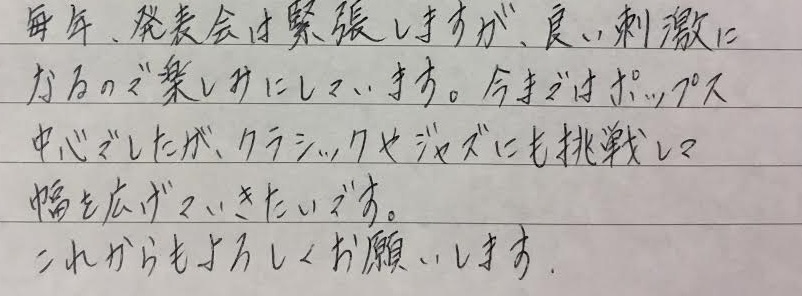 毎年、発表会は緊張しますが、良い刺激に
なるので楽しみにしています。今まではポップス
中心でしたが、クラシックやジャズにも挑戦して
幅を広げていきたいです。
これからもよろしくお願いします.